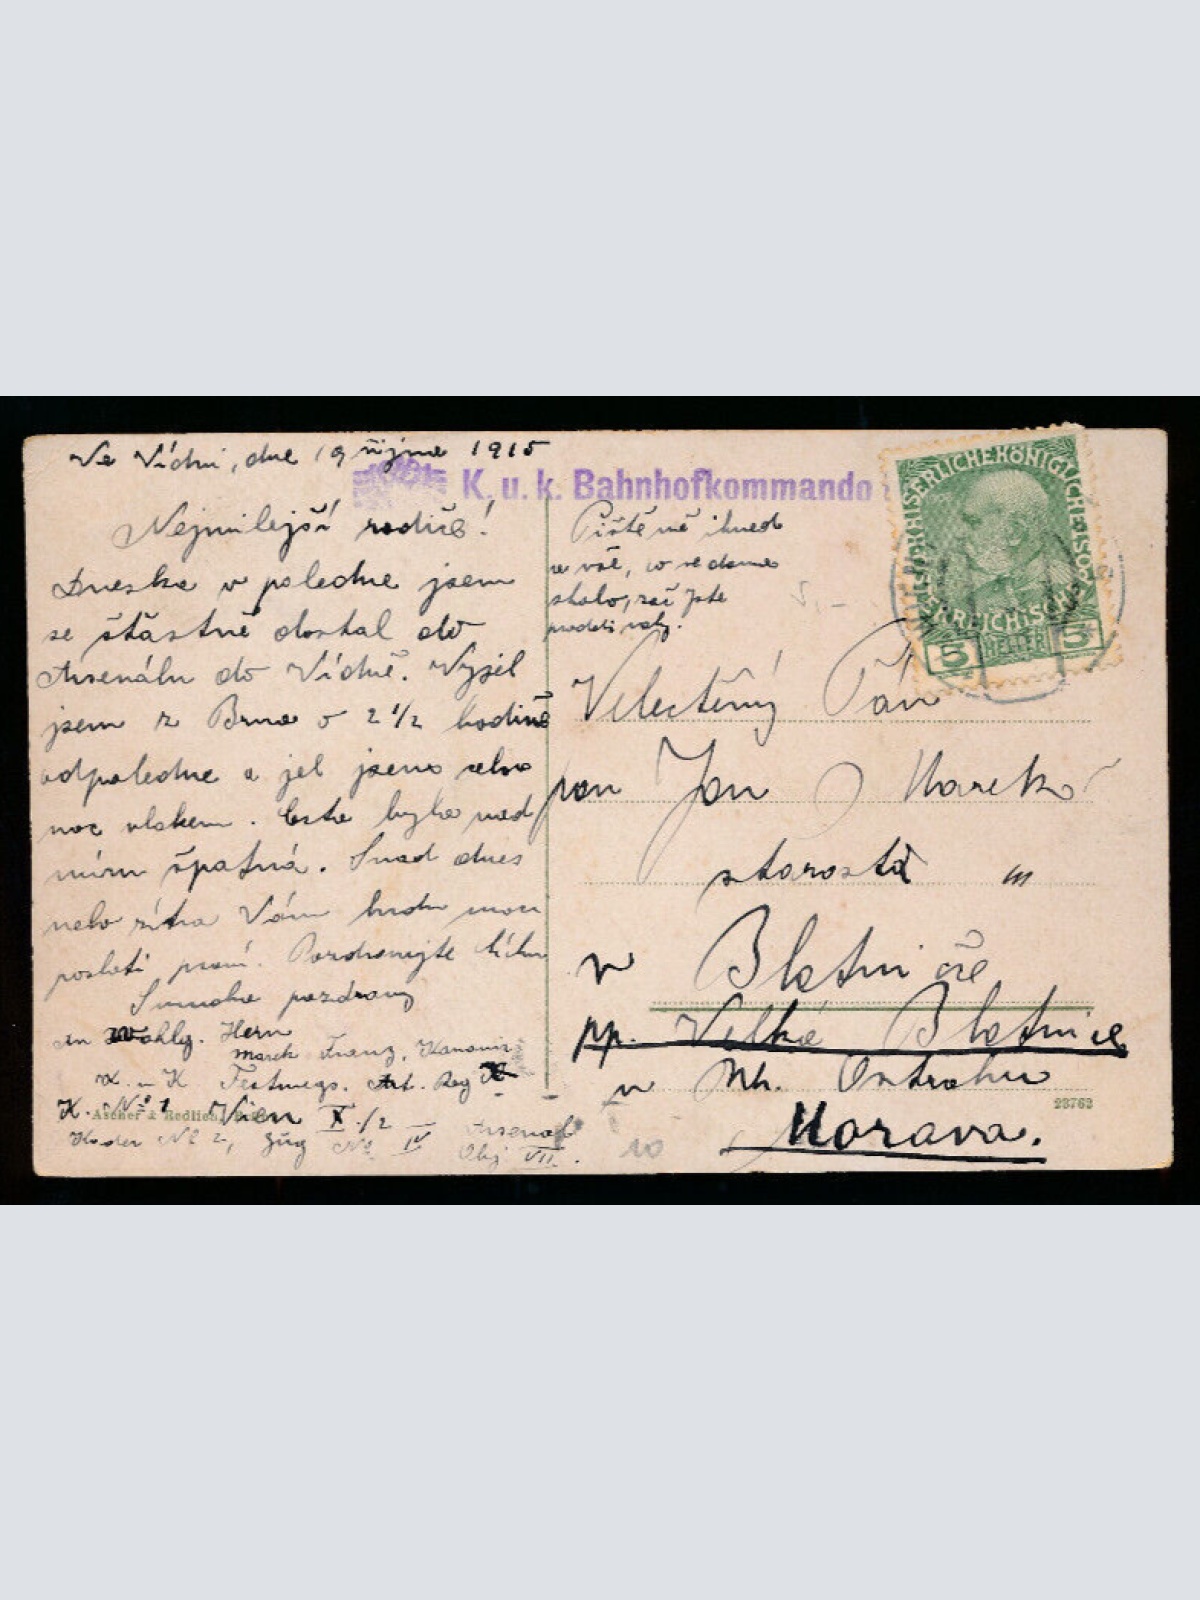 Ve Vídni, dne 19 října 1915
K. u. k. Bahnhofkommando
Nejmilejší rodiče!
Dneska v poledne jsem
se štastně dostal do
Arsenálu do Vídně. Vyjel
jsem z Brna o 2 1/2 hodině
odpoledne a jel jsem celou
noc vlakem. Cesta byla nad
míru špatná. Snad dnes
nebo zítra Vám budu moci
poslati psaní. Pozdravujte
Srdečný pozdrav
An Herrn
Marek Franz, Kanonier
K. u K Festungs. Art. Reg
K. No 1 Wien X/2 Arsenal
Kader No 2, Zug No IV Obj VII.
Ascher & Redlich
Pište mě ihned
vše, co se doma
stalo, zač jste
prodali voly.
KAISERLICHE KÖNIGLICHE ÖSTERREICHISCHE
5 HELLER 5
Velectěný Pán
pan Jan Marek
starosta
v Blatničce
pp. Velká Blatnice
u Uh. Ostrohu
Morava.
23763
10